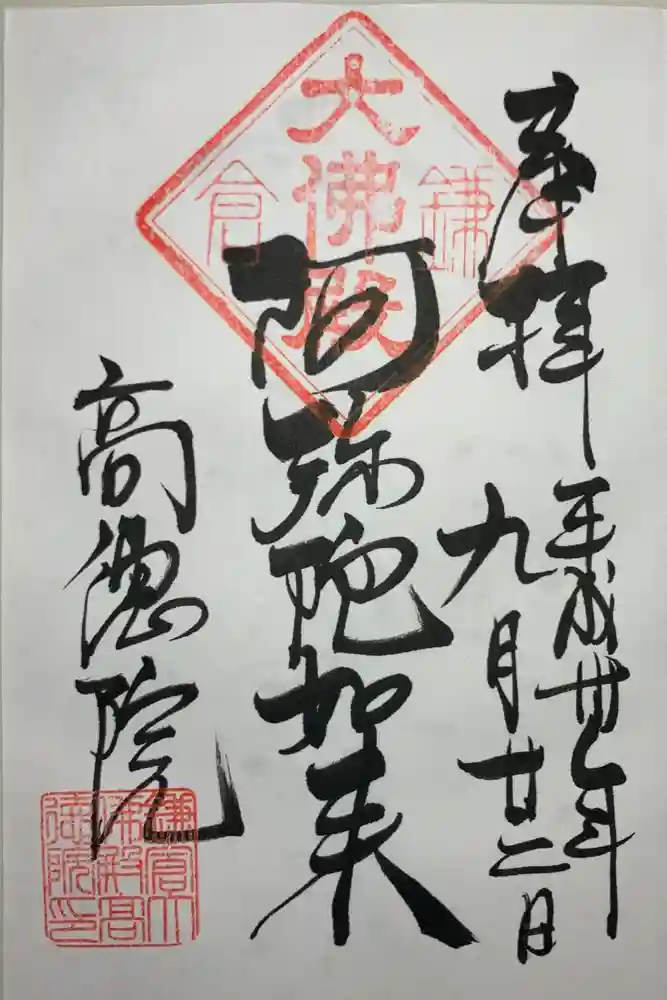 奉拝
平成卅年
九月廿二日
大佛殿
鎌倉
阿弥陀如来
高徳院
鎌倉大
佛殿高
徳院印